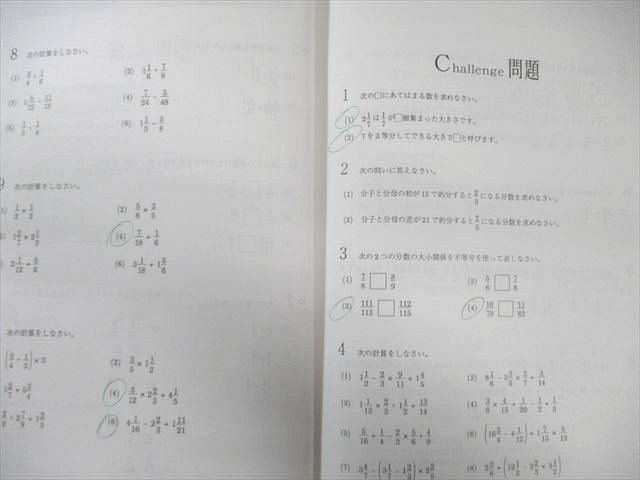 8 次の計算をしなさい。
(1) 3/4 + 1/6 (2) 1 1/6 + 7/8
(3) 1 5/12 − 11/18 (4) 7/24 − 5/48
(5) 1/3 − 1/4 (6) 1 1/3 − 5/8
9 次の計算をしなさい。
1/2 × 1/3 (2) 5/6 × 3/5
1 2/7 × 2 1/3 (4) 7/18 ÷ 1/6
2 1/12 ÷ 5/6 (6) 3 1/18 ÷ 1 5/6
次の計算をしなさい。
(3/4 − 1/3) × 3 (2) 3/5 × 1 1/2
1 2/7 ÷ 6 3/4 (4) 5/12 × 2 2/3 ÷ 4 1/5
2/9 ÷ 2 7/9 ÷ 1 2/3 (6) 4 1/16 − 2 2/3 ÷ 1 11/21
Challenge 問題
1 次の□にあてはまる数を求めなさい。
(1) 2 1/7 は 1/7 が□個集まった大きさです。
(2) 7を3等分してできる大きさ□と呼びます。
2 次の問いに答えなさい。
(1) 分子と分母の和が15で約分すると 2/3 になる分数を求めなさい。
(2) 分子と分母の差が21で約分すると 2/5 になる分数を求めなさい。
3 次の2つの分数の大小関係を不等号を使って表しなさい。
(1) 7/8 □ 8/9 (2) 5/6 □ 7/8
(3) 111/113 □ 112/115 (4) 10/79 □ 11/83
4 次の計算をしなさい。
(1) 1 1/2 − 2/3 × 9/11 ÷ 1 4/5 (2) 8 1/6 − 3 3/5 × 3/7 ÷ 3/14
(3) 1 1/13 × 2/3 ÷ 1 1/2 ÷ 13/14 (4) 3/8 × 4/15 ÷ 1/20 − 1/2 ÷ 1/3
(5) 5/16 ÷ 1/4 − 2/3 × 5/6 ÷ 4/9 (6) (16 3/4 − 4 1/12) ÷ 1 7/15 × 5/19
(7) 3 4/7 − (3 1/7 − 1 2/3) × 2 2/5 (8) 2 3/8 ÷ (12 1/2 − 2 2/3 × 3 1/2)